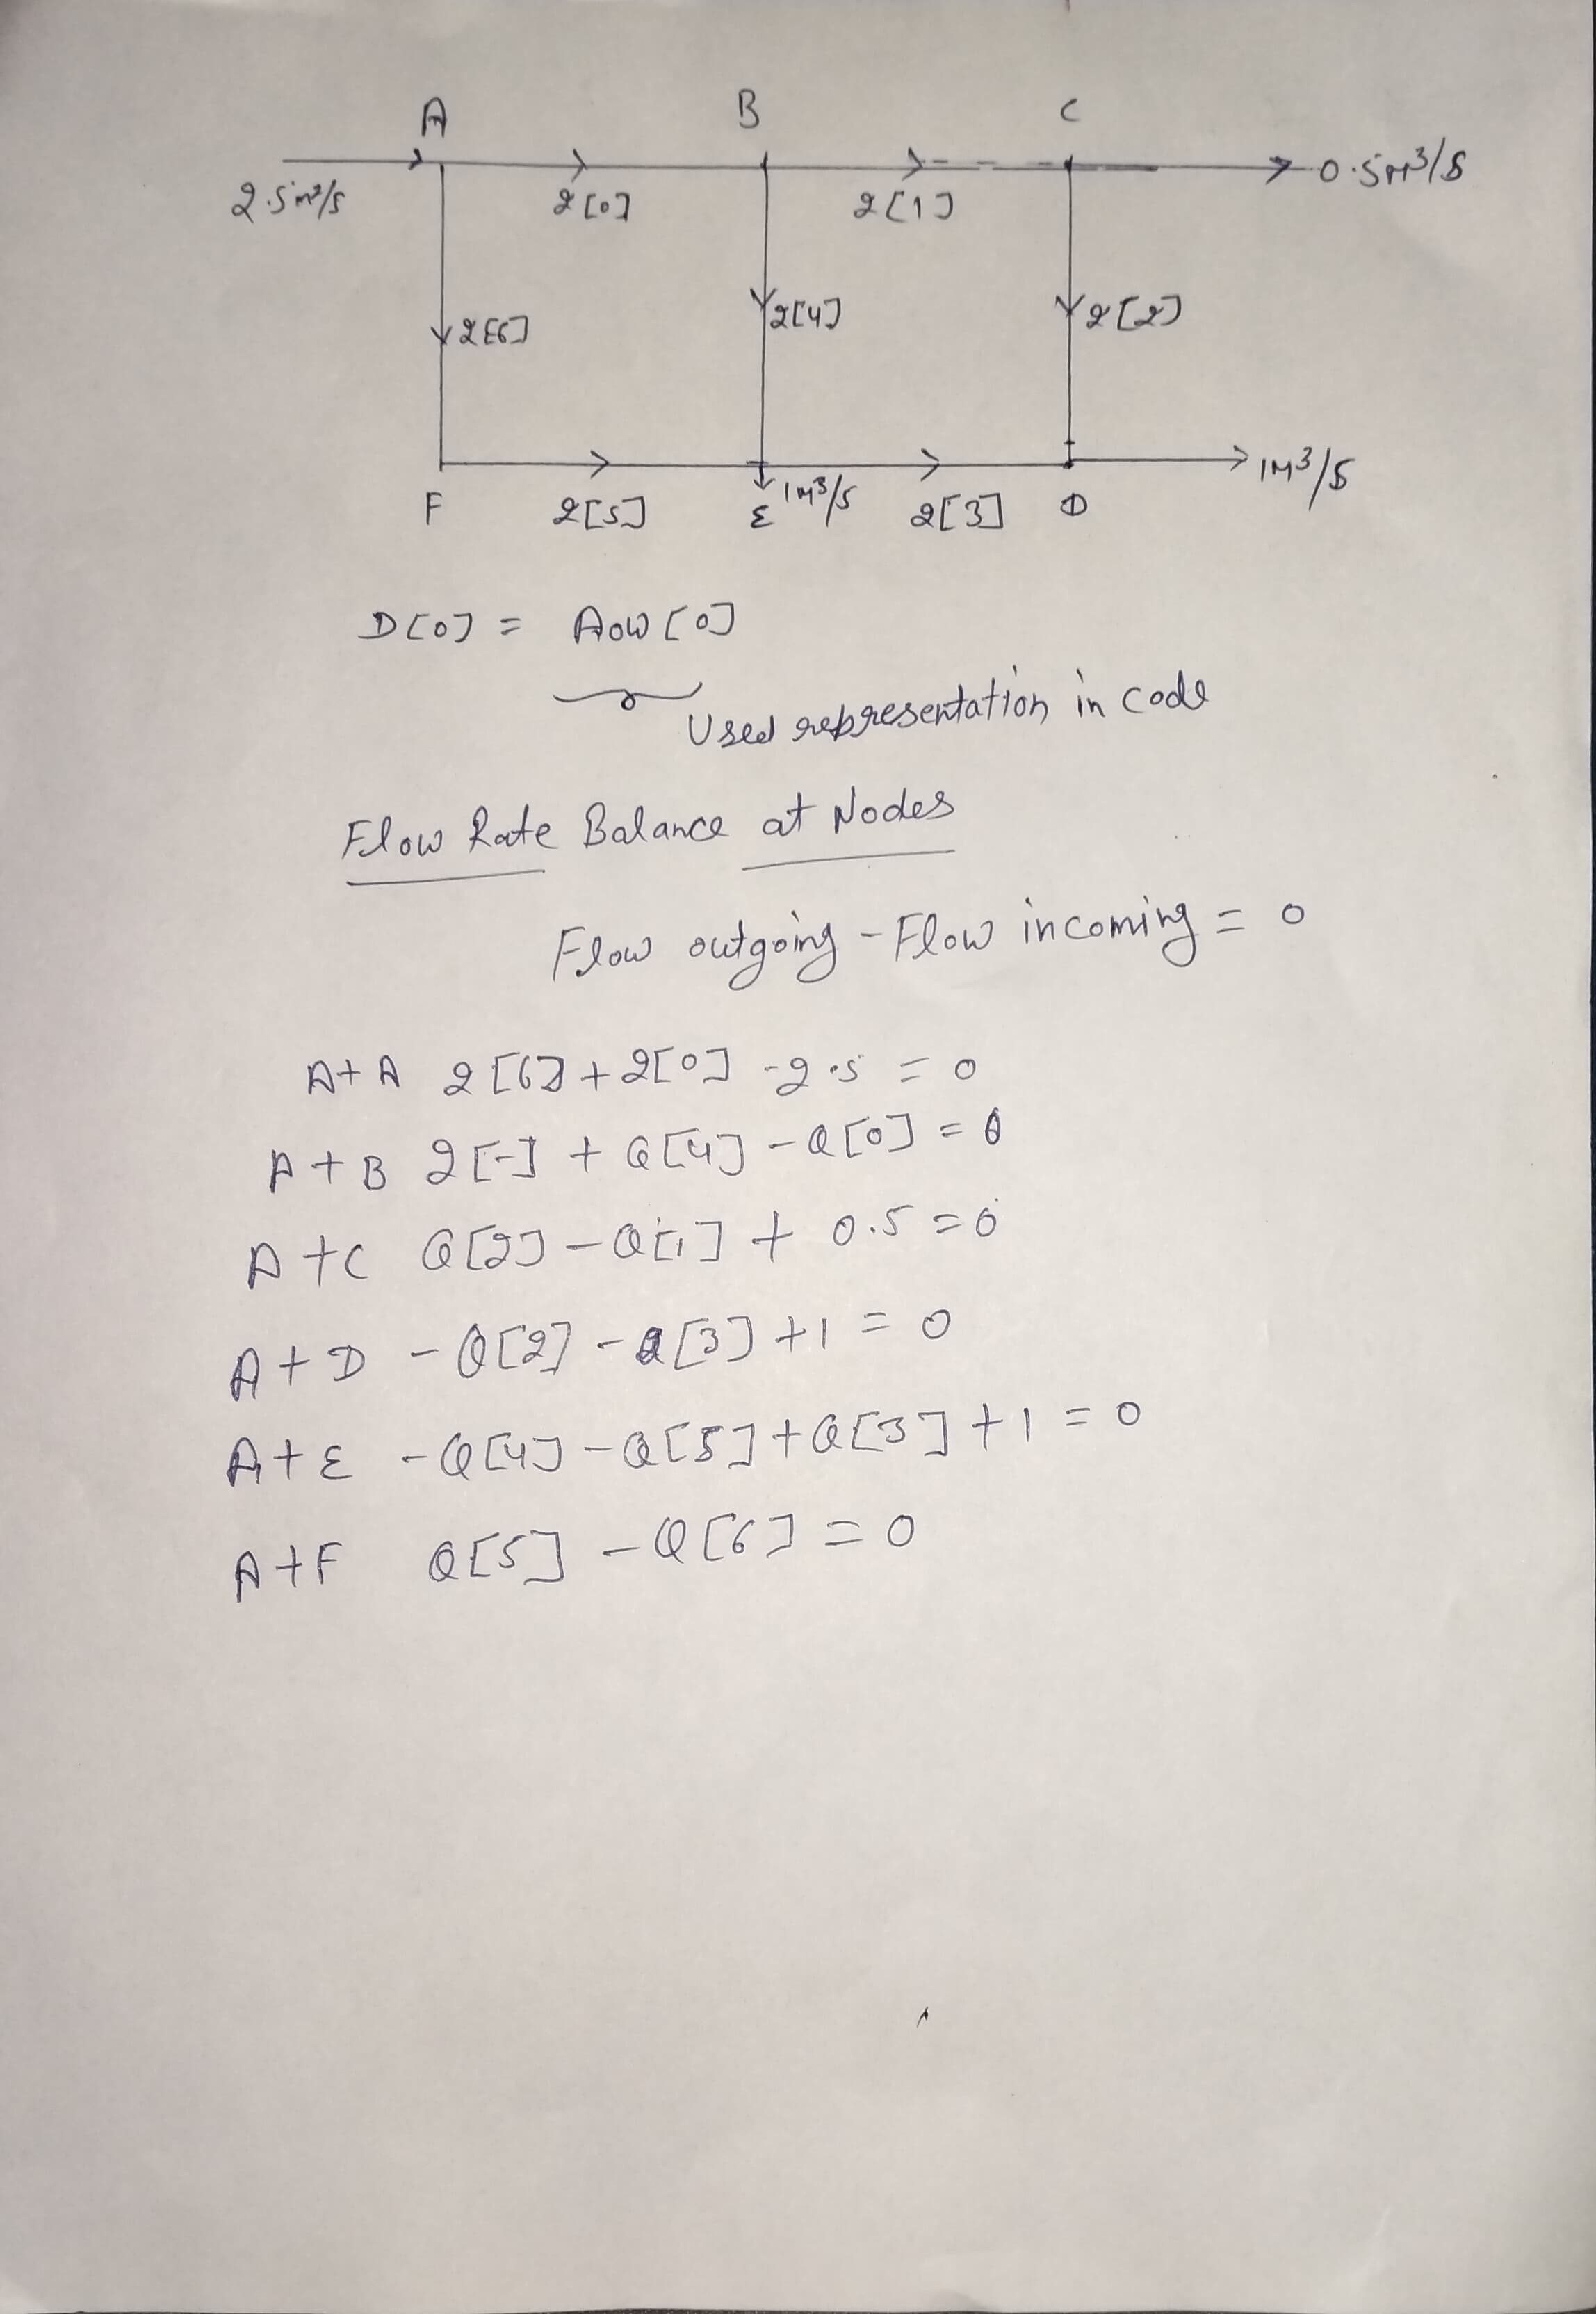 A B C
2.5m³/s 2[0] 2[1] 0.5M³/S
2[6] 2[4] 2[2]
1M³/S
F 2[5] E 1M³/S 2[3] D
D[0] = Flow [0]
Used representation in code
Flow Rate Balance at Nodes
Flow outgoing - Flow incoming = 0
At A 2[6] + 2[0] - 2.5 = 0
At B 2[-] + Q[4] - Q[0] = 0
At C Q[2] - Q[1] + 0.5 = 0
At D - Q[2] - Q[3] + 1 = 0
At E - Q[4] - Q[5] + Q[3] + 1 = 0
At F Q[5] - Q[6] = 0